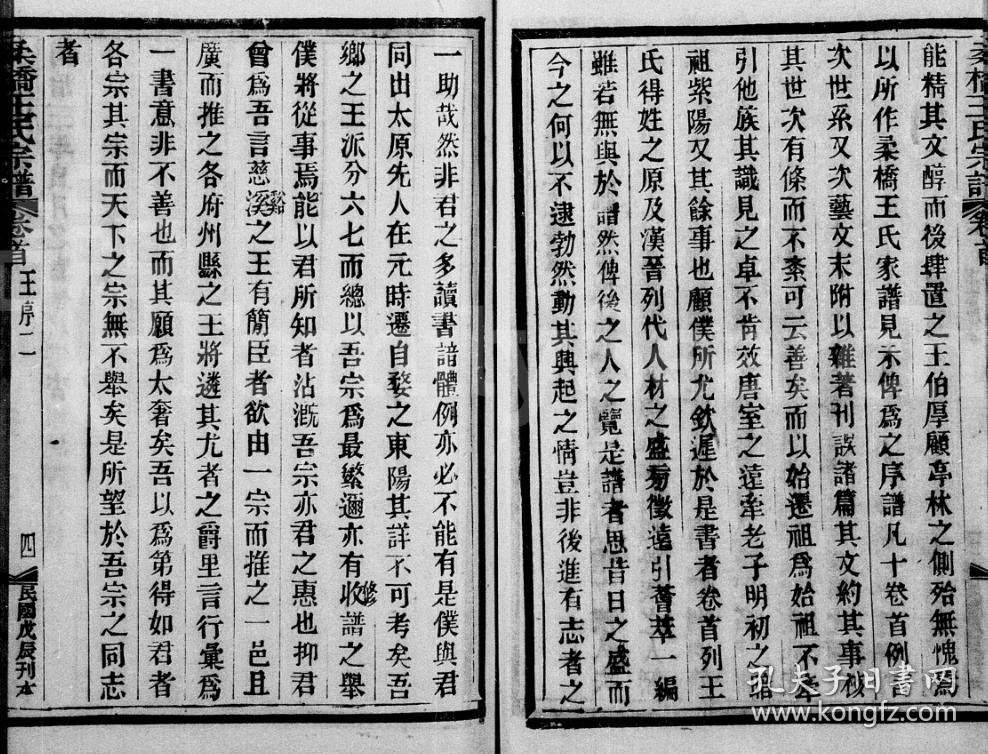 柔橋王氏宗譜 卷首
能精其文醇而後肆置之王伯厚顧亭林之側殆無愧焉
以所作柔橋王氏家譜見示俾爲之序譜凡十卷首例言
次世系又次藝文末附以雜著刊誤諸篇其文約其事核
其世次有條而不紊可云善矣而以始遷祖爲始祖不牽
引他族其識見之卓不肯效唐室之遠牽老子明初之
祖紫陽又其餘事也顧僕所尤欽遲於是書者卷首列王
氏得姓之原及漢晉列代人材之盛旁徵遠引薈萃一編
雖若無與於譜然俾後之人之覽是譜者思昔日之盛而
今之何以不逮勃然動其興起之情豈非後進有志者之
一助哉然非君之多讀書諳體例亦必不能有是僕與君
同出太原先人在元時遷自婺之東陽其詳不可考矣吾
鄉之王派分六七而總以吾宗爲最繁邇亦有收譜之舉
修
僕將從事焉能以君所知者沾漑吾宗亦君之惠也抑君
曾爲吾言慈溪之王有簡臣者欲由一宗而推之一邑且
谿
廣而推之各府州縣之王將遴其尤者之爵里言行彙爲
一書意非不善也而其願爲太奢矣吾以爲第得如君者
各宗其宗而天下之宗無不舉矣是所望於吾宗之同志
者
柔橋王氏宗譜 卷首 王序二
四
民國戊辰刊本
孔夫子旧书网
www.kongfz.com